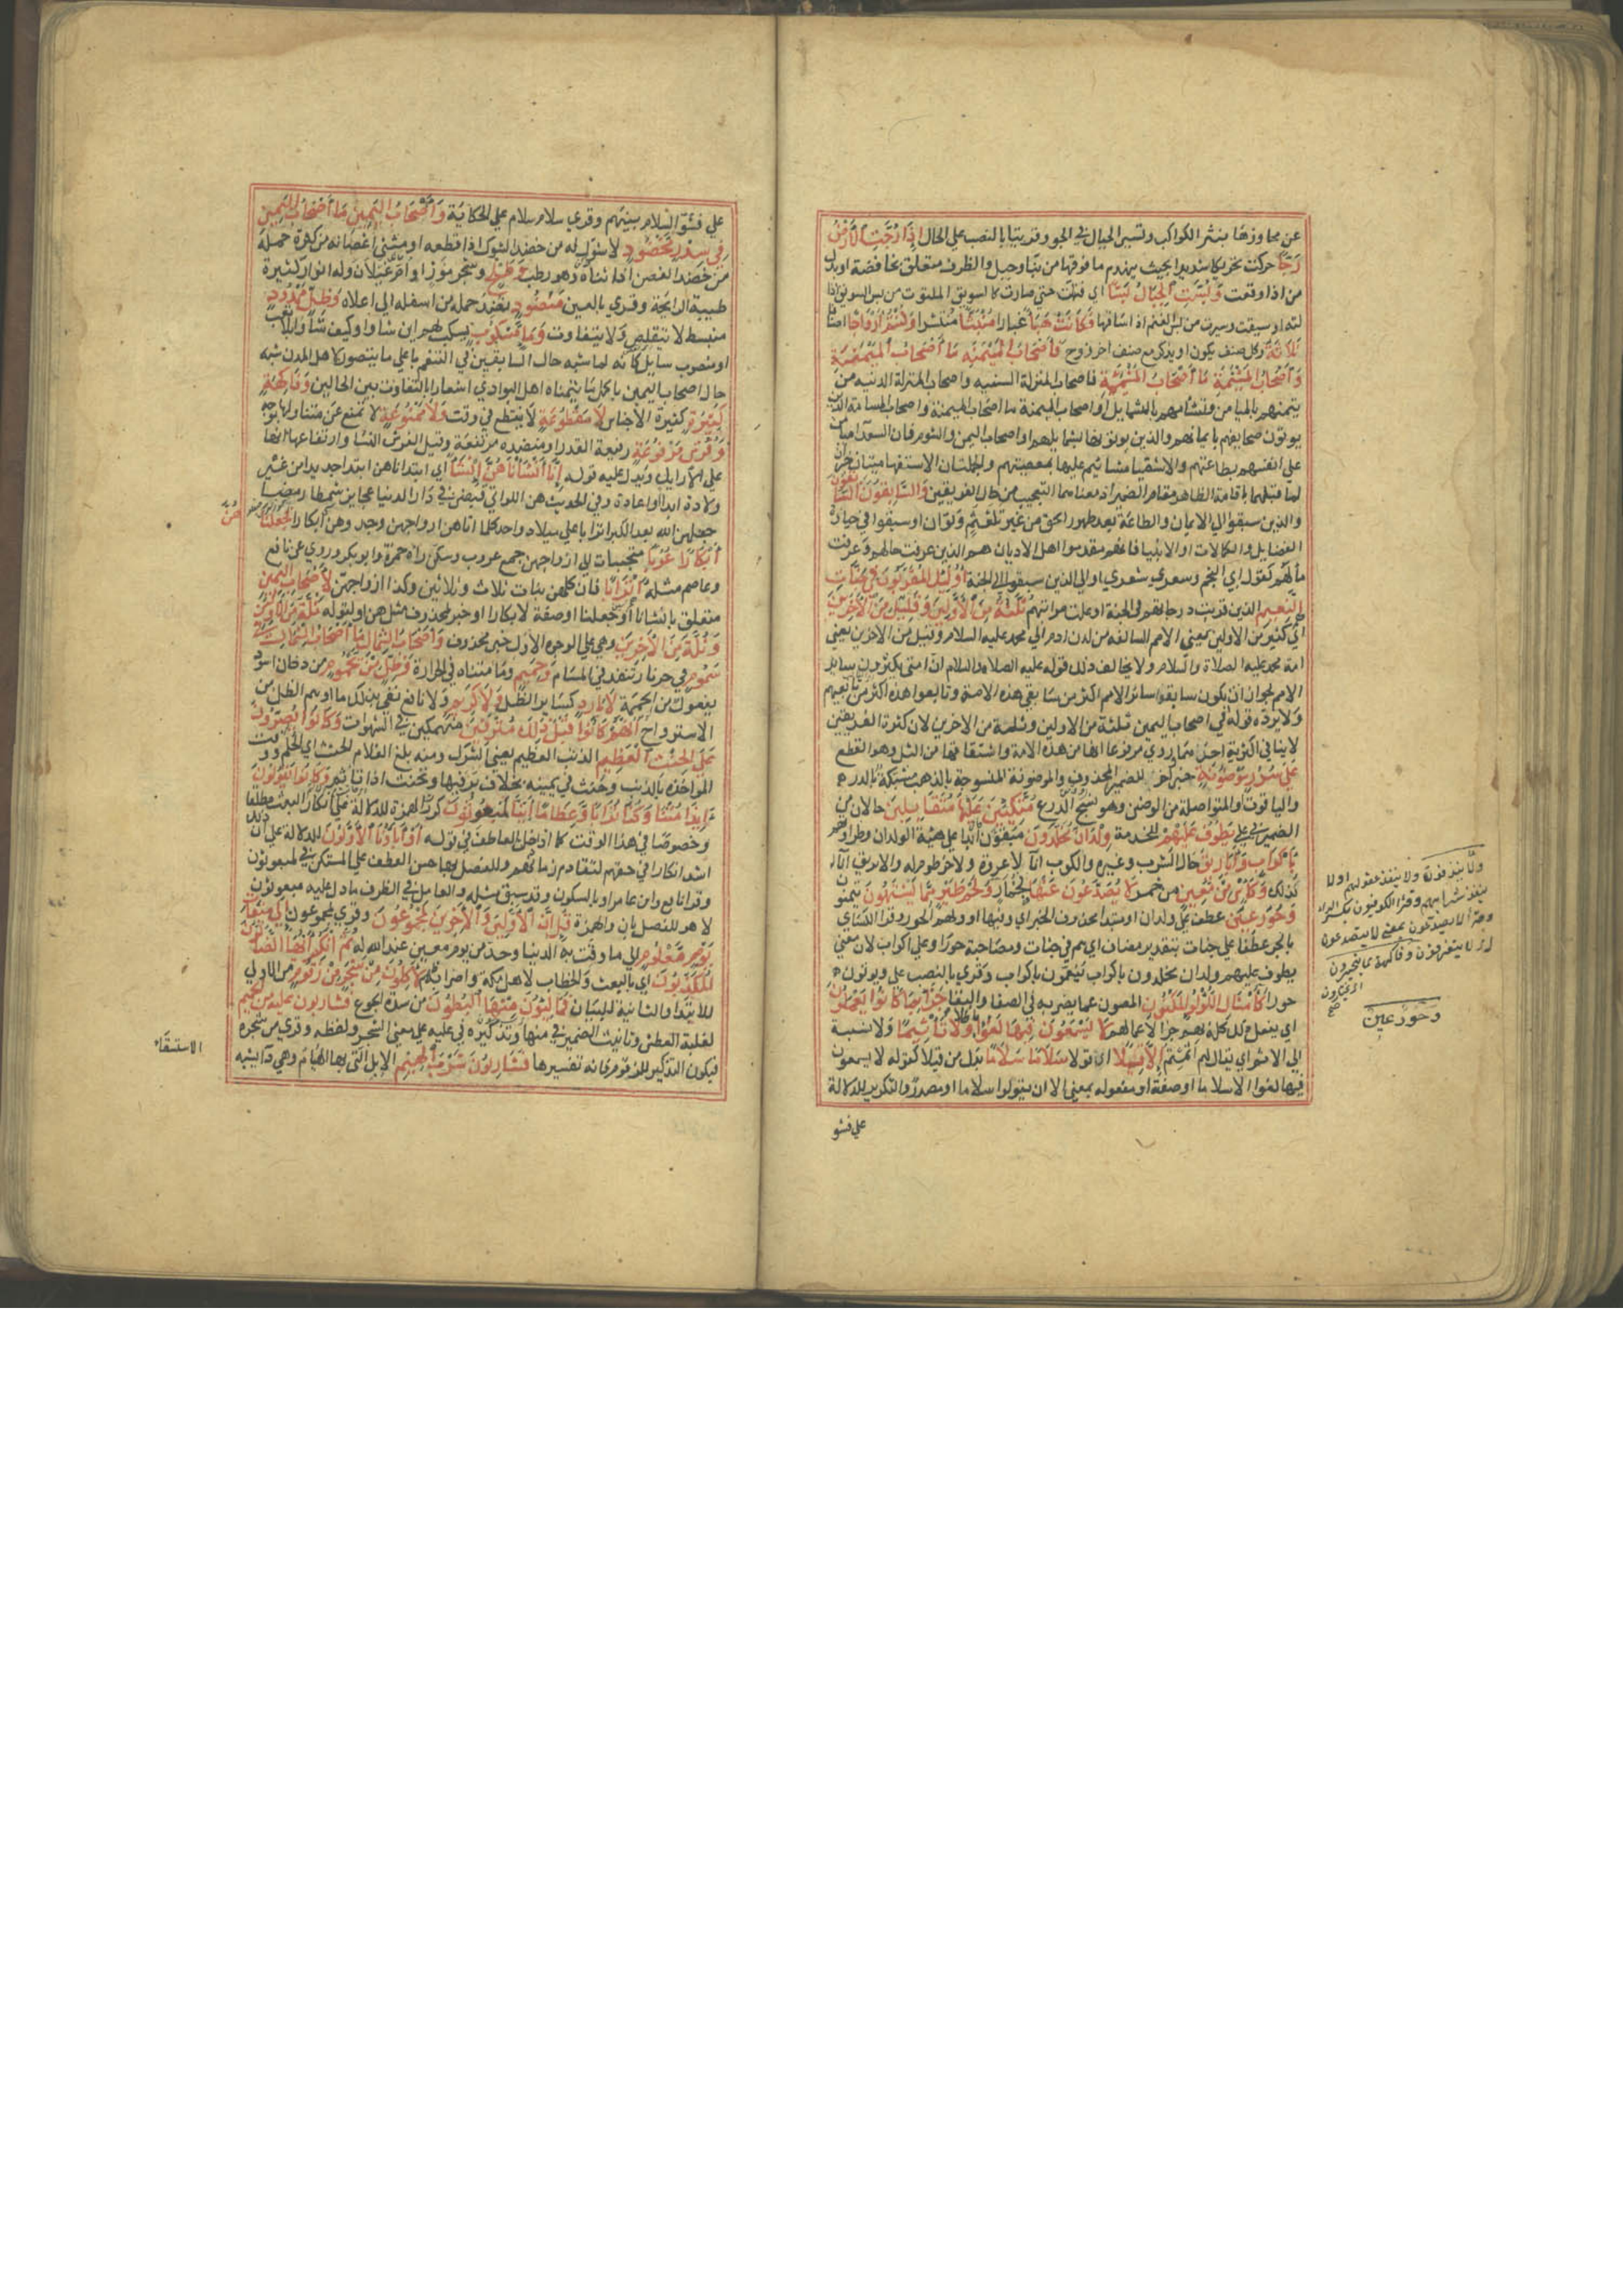 عن محاورها بنثر الكواكب وتسير الجبال في الجو وقرئتا بالنصب علي الحال اِذَا رُجَّتِ الْاَرْضُ
رَجًّا حركت تحريكا شديدا بحيث ينهدم ما فوقها من بنا وجبل والظرف متعلق بخافضة او بدل
من اذا وقعت وَبُسَّتِ الْجِبَالُ بَسًّا اي فتتت حتي صارت كالسويق الملتوت من بس السويق اذا
لته او سيقت وسيرت من بس الغنم اذا ساقها فَكَانَتْ هَبَاءً غبارا مُنْبَثًّا منتشرا وَكُنْتُمْ اَزْوَاجًا اصنافا
ثَلَاثَةً وكل صنف يكون او يذكر مع صنف اخر زوج فَاَصْحَابُ الْمَيْمَنَةِ مَا اَصْحَابُ الْمَيْمَنَةِ
وَاَصْحَابُ الْمَشْئَمَةِ مَا اَصْحَابُ الْمَشْئَمَةِ فاصحاب المنزلة السنيه واصحاب المنزلة الدنيه من
يتمنهم بالميامن وتشأمهم بالشمايل او اصحاب الميمنة ما اصحاب الميمنة واصحاب المشامة الذين
يوتون صحايفهم بايمانهم والذين يوتونها بشمايلهم او اصحاب اليمن والشوم فان السعدا ميامين
علي انفسهم بطاعتهم والاشقيا مشائيم عليها بمعصيتهم والجملتان الاستفهاميتان خبران
لما قبلهما باقامة الظاهر مقام الضمير ومعناهما التعجب من حال الفريقين وَالسَّابِقُونَ السَّابِقُونَ
والذين سبقوا الي الايمان والطاعة بعد ظهور الحق من غير تلعثم وتوان او سبقوا في حيازة
الفضايل والكمالات او الانبيا فانهم مقدموا اهل الاديان هم الذين عرفت حالهم وعرفت
مآلهم كقول ابي النجم وشعري شعري او الذين سبقوا الي الجنة اُولٰئِكَ الْمُقَرَّبُونَ فِي جَنَّاتِ
النَّعِيمِ الذين قربت درجاتهم في الجنة او علت مراتبهم ثُلَّةٌ مِنَ الْاَوَّلِينَ وَقَلِيلٌ مِنَ الْآخِرِينَ
اي كثير من الاولين يعني الامم السالفه من لدن ادم الي محمد عليه السلام وقليل من الاخرين يعني
امة محمد عليه الصلاة والسلام ولا يخالف ذلك قوله عليه الصلاة والسلام ان امتي يكثرون ساير
الامم لجواز ان يكون سابقوا سائر الامم اكثر من سابقي هذه الامة وتابعوا هذه اكثر من تابعيهم
ولا يرده قوله في اصحاب اليمين ثلثة من الاولين وثلثة من الاخرين لان كثرة الفريقين
لا ينافي اكثرية احدهما وروي مرفوعا انهما من هذه الامة واشتقاقها من الثل وهو القطع
عَلَى سُرُرٍ مَوْضُونَةٍ خبر اخر للضمير المحذوف والموضونة المنسوجة بالذهب مشبكة بالدر
والياقوت والمتواصلة من الوضن وهو نسج الدرع مُتَّكِئِينَ عَلَيْهَا مُتَقَابِلِينَ حالان من
الضمير في علي يَطُوفُ عَلَيْهِمْ للخدمة وِلْدَانٌ مُخَلَّدُونَ مبقون ابدا علي هيئة الولدان وطراوتهم
بِاَكْوَابٍ وَاَبَارِيقَ حال الشرب وغيره والكوب انآ لا عروة ولا خرطوم له والابريق انآ له
ذلك وَكَاْسٍ مِنْ مَعِينٍ من خمر لَا يُصَدَّعُونَ عَنْهَا بخمار وَلَحْمِ طَيْرٍ مِمَّا يَشْتَهُونَ يتمنون
وَحُورٌ عِينٌ عطف علي ولدان او مبتدا محذوف الخبر اي وفيها او ولهم حور وقرا الكسائي
بالجر عطفا علي جنات بتقدير مضاف اي هم في جنات ومصاحبة حور او علي اكواب لان معني
يطوف عليهم ولدان مخلدون باكواب ينعمون باكواب وقري بالنصب علي ويوتون
حورا كَاَمْثَالِ اللُّؤْلُؤِ الْمَكْنُونِ المصون عما يضر به في الصفا والنقا جَزَاءً بِمَا كَانُوا يَعْمَلُونَ
اي يفعل ذلك كله بهم جزا لاعمالهم لَا يَسْمَعُونَ فِيهَا لَغْوًا باطلا وَلَا تَاْثِيمًا ولا نسبة
الي الاثم اي يقال لهم اثمتم اِلَّا قِيلًا اي قولا سَلَامًا سَلَامًا بدل من قيلا كقوله لا يسمعون
فيها لغوا الا سلاما او صفة او مفعوله بمعني الا ان يقولوا سلاما او مصدر والتكرير للدلالة
علي فشو
ولا ينزفون ولا ينزف عقولهم او لا
ينفد شرابهم وقرا الكوفيون بكسر الزاء
وقري لا يصدعون بمعني لا يتصدعون
اي لا يتفرقون وفاكهة مما يتخيرون
اي يختارون
صح
وحور عين
علي فشو السلام بينهم وقري سلام سلام علي الحكاية وَاَصْحَابُ الْيَمِينِ مَا اَصْحَابُ الْيَمِينِ
فِي سِدْرٍ مَخْضُودٍ لا شوك له من خضد الشوك اذا قطعه او مثني اغصانه من كثرة حمله
من خضد الغصن اذا ثناه وهو رطب وَطَلْحٍ وشجر موز او ام غيلان وله انوار كثيرة
طيبة الرايحة وقري بالعين مَنْضُودٍ نضد حمله من اسفله الي اعلاه وَظِلٍّ مَمْدُودٍ
منبسط لا يتقلص ولا يتفاوت وَمَاءٍ مَسْكُوبٍ يسكب لهم اين شاوا وكيف شاوا بلا تعب
او مصبوب سايل كانه لما شبه حال السابقين في التنعم باعلي ما يتصور لاهل المدن شبه
حال اصحاب اليمين باكمل ما يتمناه اهل البوادي اشعارا بالتفاوت بين الحالين وَفَاكِهَةٍ
كَثِيرَةٍ كثيرة الاجناس لَا مَقْطُوعَةٍ لا ينقطع في وقت وَلَا مَمْنُوعَةٍ لا تمنع عن متناولها بوجه
وَفُرُشٍ مَرْفُوعَةٍ رفيعة القدر او منضده مرتفعة وقيل الفرش النسا وارتفاعها انها
علي الارايك ويدل عليه قوله اِنَّا اَنْشَاْنَاهُنَّ اِنْشَاءً اي ابتداناهن ابتدا جديدا من غير
ولادة ابدا او اعادة وفي الحديث هن اللواتي قبضن في دار الدنيا عجايز شمطا رمصا
جعلهن الله بعد الكبر اترابا علي ميلاد واحد كلما اتاهن ازواجهن وجدوهن ابكارا فَجَعَلْنَاهُنَّ
اَبْكَارًا عُرُبًا متحببات الي ازواجهن جمع عروب وسكن راه حمزة وابو بكر وروي عن نافع
وعاصم مثله اَتْرَابًا فان كلهن بنات ثلاث وثلاثين وكذا ازواجهن لِاَصْحَابِ الْيَمِينِ
متعلق بانشانا او جعلنا او صفة لابكارا او خبر لمحذوف مثل هن او لقوله ثُلَّةٌ مِنَ الْاَوَّلِينَ
وَثُلَّةٌ مِنَ الْآخِرِينَ وهي علي الوجوه الاول خبر محذوف وَاَصْحَابُ الشِّمَالِ مَا اَصْحَابُ الشِّمَالِ فِي
سَمُومٍ في حر نار تنفذ في المسام وَحَمِيمٍ وما متناه في الحرارة وَظِلٍّ مِنْ يَحْمُومٍ من دخان اسود
يفعول من الحممة لَا بَارِدٍ كساير الظل وَلَا كَرِيمٍ ولا نافع نفي بذلك ما اوهم الظل من
الاسترواح اِنَّهُمْ كَانُوا قَبْلَ ذٰلِكَ مُتْرَفِينَ منهمكين في الشهوات وَكَانُوا يُصِرُّونَ
عَلَى الْحِنْثِ الْعَظِيمِ الذنب العظيم يعني الشرك ومنه بلغ الغلام الحنث اي الحلم ووقت
المواخذه بالذنب وحنث في يمينه بخلاف بر فيها وتحنث اذا تاثم وَكَانُوا يَقُولُونَ
ءَاِذَا مِتْنَا وَكُنَّا تُرَابًا وَعِظَامًا اَئِنَّا لَمَبْعُوثُونَ كررت الهمزة للدلالة علي انكار البعث مطلقا
وخصوصا في هذا الوقت كما ادخل العاطف في قوله اَوَاٰبَاؤُنَا الْاَوَّلُونَ للدلالة علي ان ذلك
اشد انكارا في حقهم لتقادم زمانهم وللفصل بها حسن العطف علي المستكن في لمبعوثون
وقرا نافع وابن عامر او بالسكون وقد سبق مثله والعامل في الظرف ما دل عليه مبعوثون
لا هو للفصل بان والهمزة قُلْ اِنَّ الْاَوَّلِينَ وَالْآخِرِينَ لَمَجْمُوعُونَ وقري لمجمعون اِلَى مِيقَاتِ
يَوْمٍ مَعْلُومٍ الي ما وقتت به الدنيا وحد من يوم معين عند الله له ثُمَّ اِنَّكُمْ اَيُّهَا الضَّالُّونَ
الْمُكَذِّبُونَ اي بالبعث والخطاب لاهل مكة واضرابهم لَاٰكِلُونَ مِنْ شَجَرٍ مِنْ زَقُّومٍ من الاولي
للابتدا والثانية للبيان فَمَالِئُونَ مِنْهَا الْبُطُونَ من شدة الجوع فَشَارِبُونَ عَلَيْهِ مِنَ الْحَمِيمِ
لغلبة العطش وتانيث الضمير في منها وتذكيره في عليه علي معني الشجر ولفظه وقري من شجرة
فيكون التذكير للزقوم فانه تفسيرها فَشَارِبُونَ شُرْبَ الْهِيمِ الابل التي بها الهيام وهي دآ يشبه
الاستسقاء